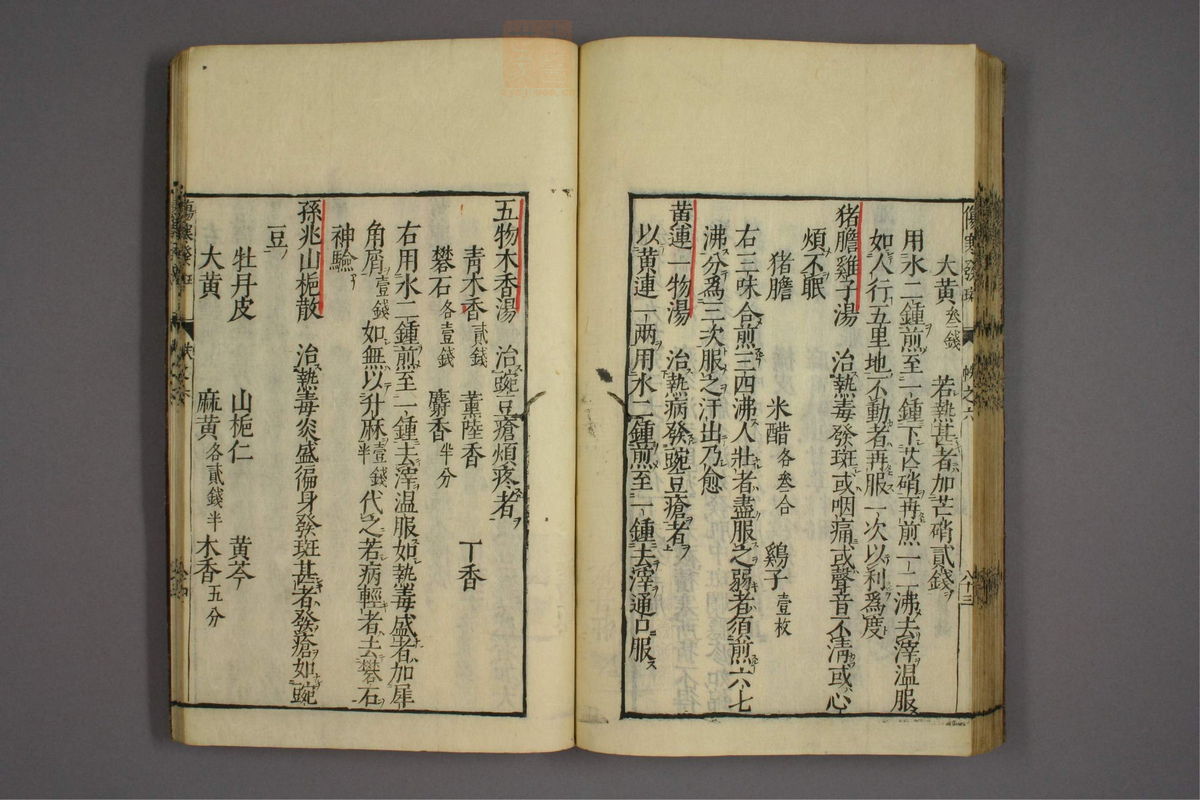 大黄叁錢 若熱甚者加芒硝貳錢
用水二鍾煎至一鍾下芒硝再煎一二沸去滓温服
如人行五里地不動者再服一次以利爲度
猪膽雞子湯 治熱毒發斑或咽痛或聲音不清或心
煩不眠
猪膽 米醋各叁合 鷄子壹枚
右三味合煎三四沸人壯者盡服之弱者須煎六七
沸分爲三次服之汗出乃愈
黄連一物湯 治熱病發豌豆瘡者
以黄連一両用水二鍾煎至一鍾去滓通口服
五物木香湯 治豌豆瘡煩疼者
青木香貳錢 薫陸香 丁香
礬石各壹錢 麝香半分
右用水二鍾煎至一鍾去滓温服如熱毒盛者加犀
角屑壹錢如無以升麻壹錢半代之若病輕者去礬石
神驗
孫兆山梔散 治熱毒炎盛徧身發斑甚者發瘡如豌
豆
牡丹皮 山梔仁 黄芩
大黄 麻黄各貳錢半 木香五分